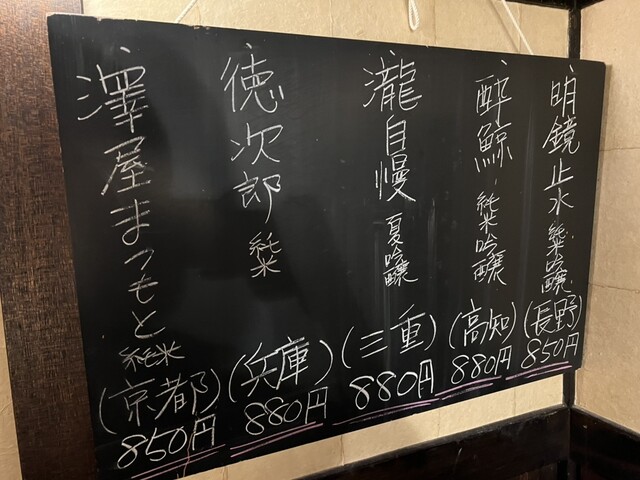 明鏡止水 純米吟醸
(長野)
850円
酔鯨 純米吟醸
(高知)
880円
瀧自慢 夏吟醸
(三重)
880円
徳次郎 純米
(兵庫)
880円
澤屋まつもと 純米
(京都)
850円